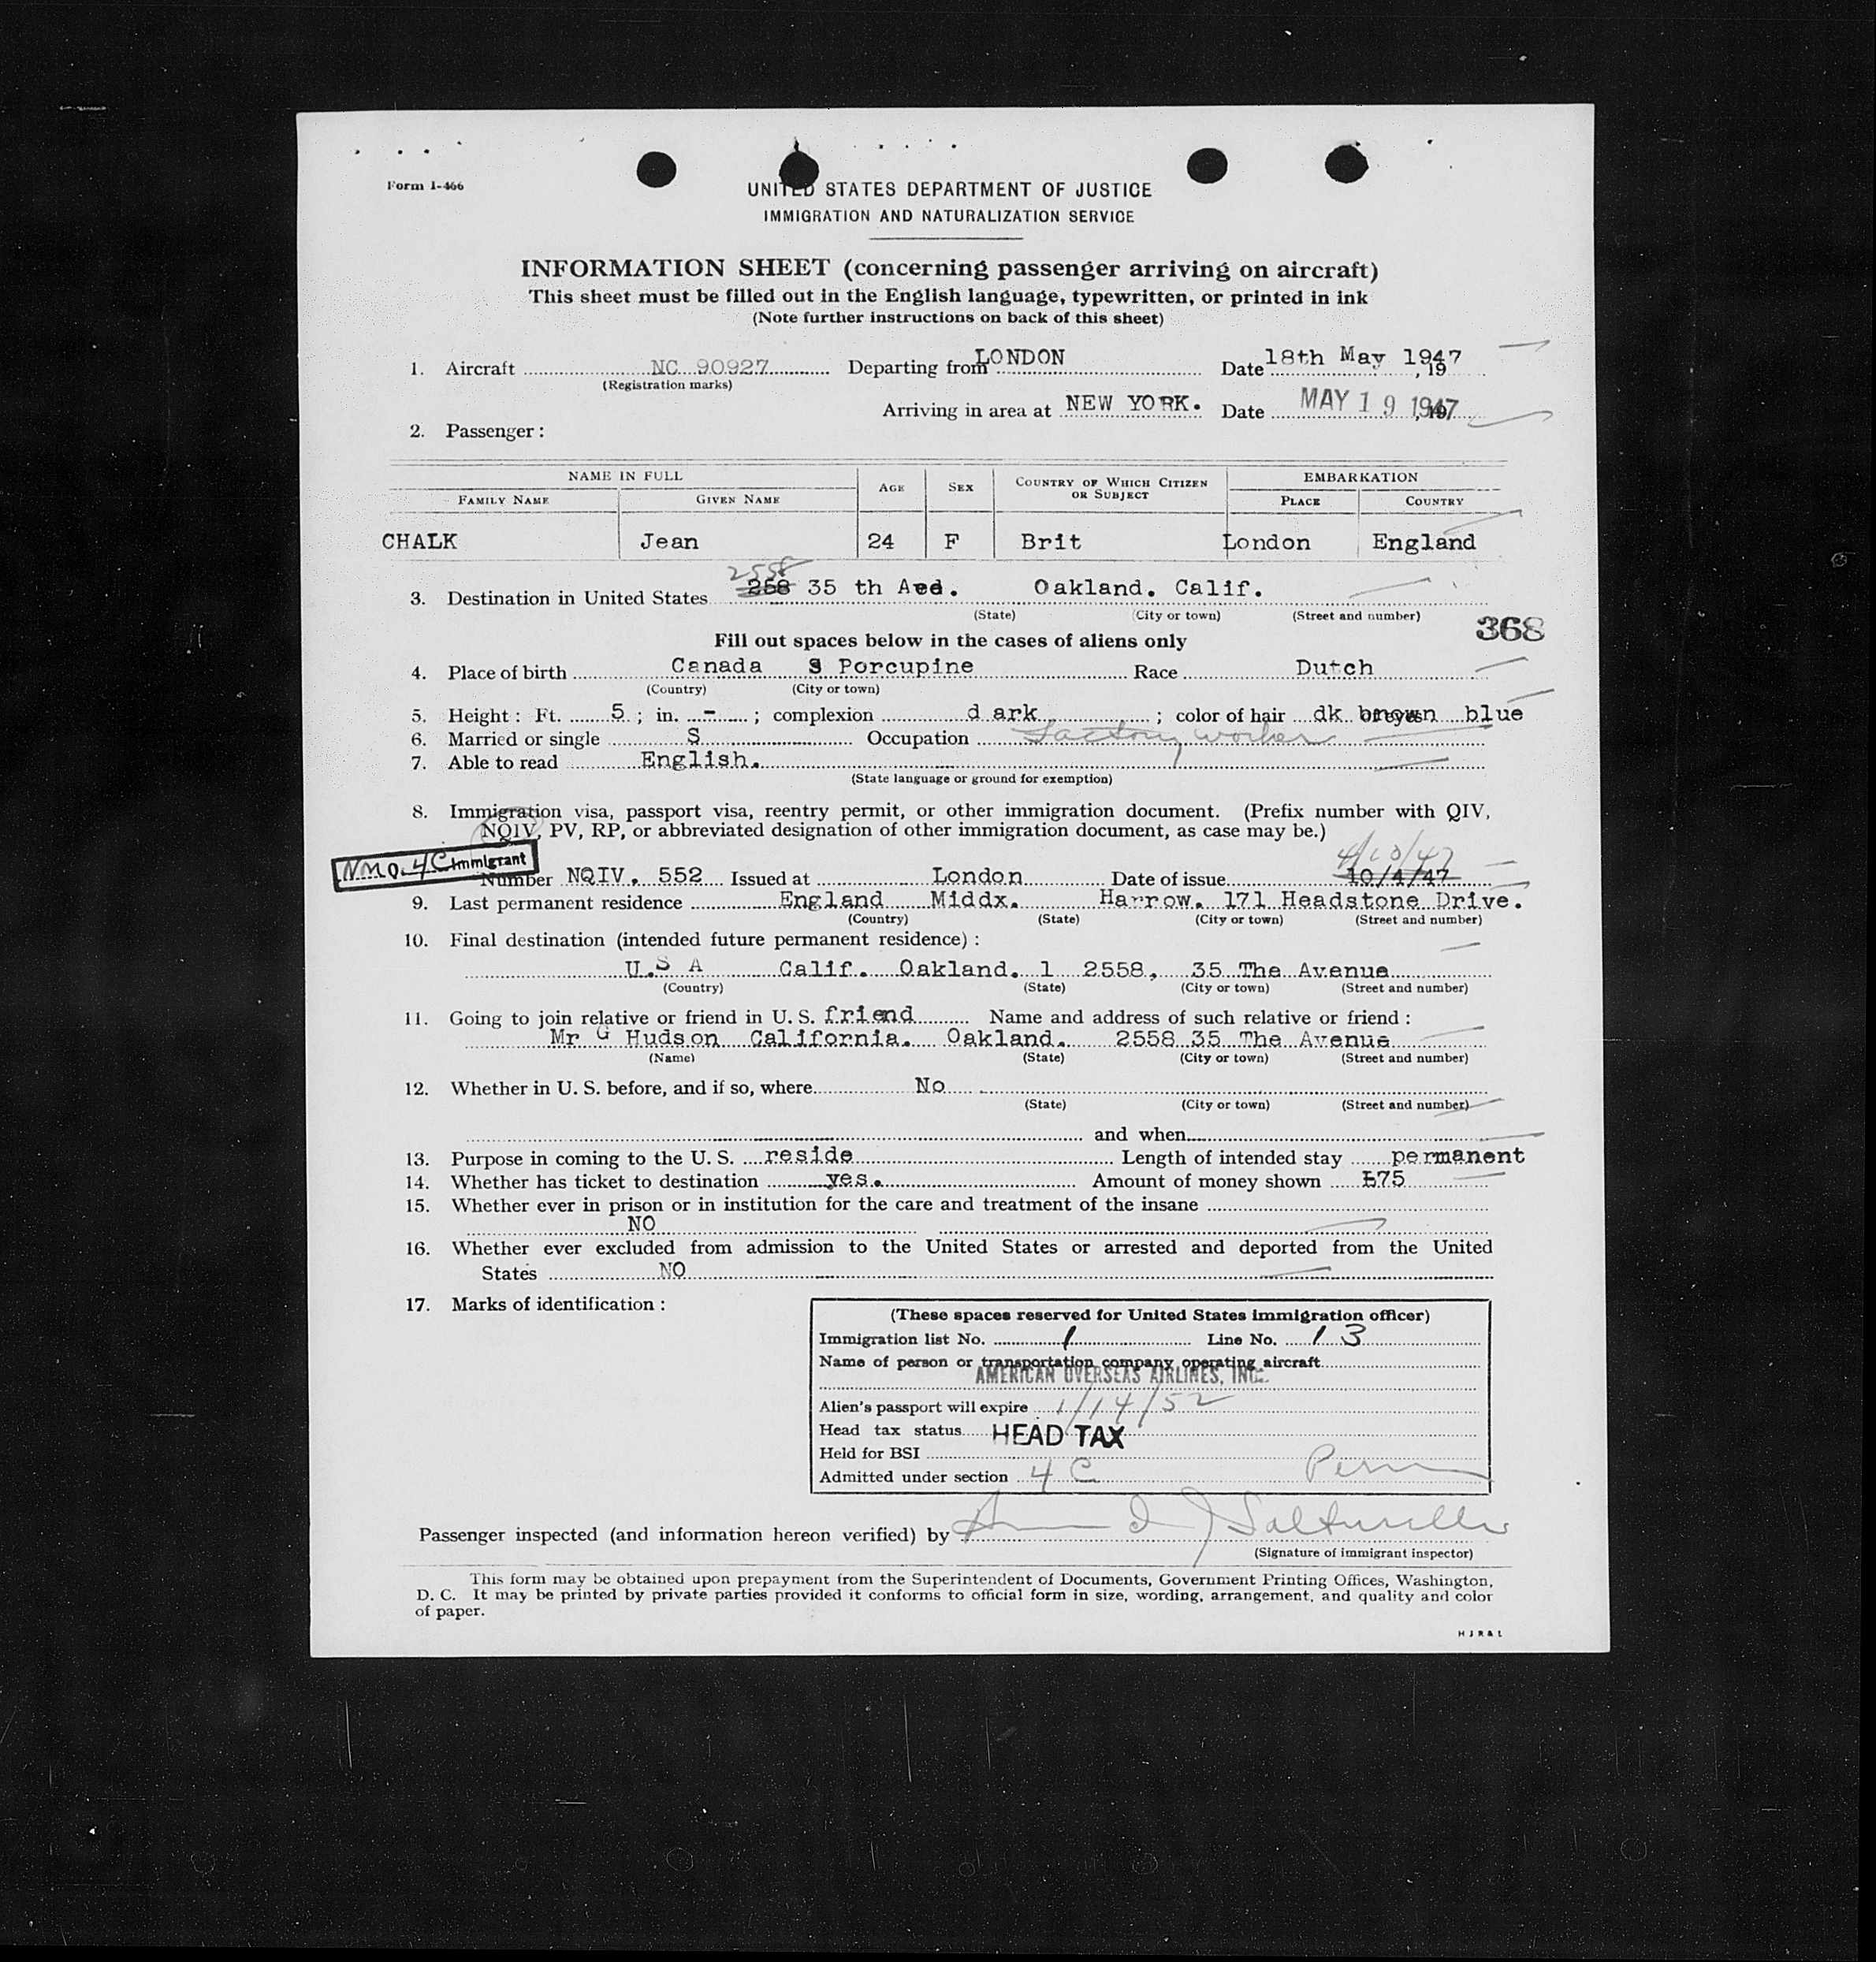 Form I-466
UNITED STATES DEPARTMENT OF JUSTICE
IMMIGRATION AND NATURALIZATION SERVICE
INFORMATION SHEET (concerning passenger arriving on aircraft)
This sheet must be filled out in the English language, typewritten, or printed in ink
(Note further instructions on back of this sheet)
1. Aircraft NC 90927 Departing from LONDON Date 18th May 1947, 19
(Registration marks)
Arriving in area at NEW YORK. Date MAY 19 1947
2. Passenger:
NAME IN FULL AGE SEX COUNTRY OF WHICH CITIZEN OR SUBJECT EMBARKATION
FAMILY NAME GIVEN NAME PLACE COUNTRY
CHALK Jean 24 F Brit London England
2558
3. Destination in United States 258 35 th Aed. Oakland. Calif.
(State) (City or town) (Street and number)
368
Fill out spaces below in the cases of aliens only
4. Place of birth Canada S Porcupine Race Dutch
(Country) (City or town)
5. Height: Ft. 5; in. -; complexion d ark; color of hair dk brown of eyes blue
6. Married or single S Occupation Factory worker
7. Able to read English.
(State language or ground for exemption)
8. Immigration visa, passport visa, reentry permit, or other immigration document. (Prefix number with QIV,
NQIV, PV, RP, or abbreviated designation of other immigration document, as case may be.)
4C Immigrant
4/10/47
Number NQIV. 552 Issued at London Date of issue 10/4/47
9. Last permanent residence England Middx. Harrow. 171 Headstone Drive.
(Country) (State) (City or town) (Street and number)
10. Final destination (intended future permanent residence):
U.S A Calif. Oakland. 1 2558, 35 The Avenue
(Country) (State) (City or town) (Street and number)
11. Going to join relative or friend in U. S. friend Name and address of such relative or friend:
Mr G Hudson California. Oakland. 2558 35 The Avenue
(Name) (State) (City or town) (Street and number)
12. Whether in U. S. before, and if so, where No
(State) (City or town) (Street and number)
and when
13. Purpose in coming to the U. S. reside Length of intended stay permanent
14. Whether has ticket to destination yes. Amount of money shown £75
15. Whether ever in prison or in institution for the care and treatment of the insane
NO
16. Whether ever excluded from admission to the United States or arrested and deported from the United
States NO
17. Marks of identification:
(These spaces reserved for United States immigration officer)
Immigration list No. 1 Line No. 13
Name of person or transportation company operating aircraft
AMERICAN OVERSEAS AIRLINES, INC.
Alien's passport will expire 1/14/52
Head tax status HEAD TAX
Held for BSI
Admitted under section 4C Perm
Passenger inspected (and information hereon verified) by
(Signature of immigrant inspector)
This form may be obtained upon prepayment from the Superintendent of Documents, Government Printing Offices, Washington,
D. C. It may be printed by private parties provided it conforms to official form in size, wording, arrangement, and quality and color
of paper.
H J R & L